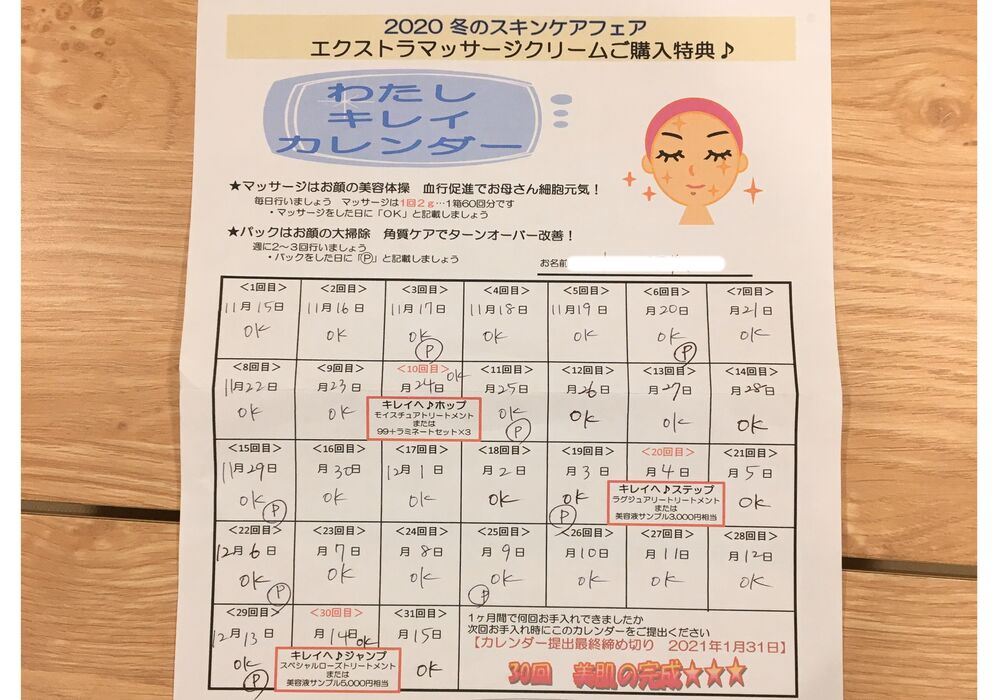 2020 冬のスキンケアフェア
エクストラマッサージクリームご購入特典♪
わたし
キレイ
カレンダー
★マッサージはお顔の美容体操　血行促進でお母さん細胞元気！
毎日行いましょう　マッサージは1回2g…1箱60回分です
・マッサージをした日に「OK」と記載しましょう
★パックはお顔の大掃除　角質ケアでターンオーバー改善！
週に2～3回行いましょう
・パックをした日に「Ⓟ」と記載しましょう
お名前
＜1回目＞ ＜2回目＞ ＜3回目＞ ＜4回目＞ ＜5回目＞ ＜6回目＞ ＜7回目＞
11月15日 11月16日 11月17日 11月18日 11月19日 月20日 月21日
OK OK OK OK OK OK OK
Ⓟ Ⓟ
＜8回目＞ ＜9回目＞ ＜10回目＞ ＜11回目＞ ＜12回目＞ ＜13回目＞ ＜14回目＞
11月22日 月23日 月24日 OK 月25日 月26日 月27日 月28日
OK OK OK OK OK OK
キレイへ♪ホップ
モイスチュアトリートメント
または
99＋ラミネートセット×3
Ⓟ
＜15回目＞ ＜16回目＞ ＜17回目＞ ＜18回目＞ ＜19回目＞ ＜20回目＞ ＜21回目＞
11月29日 月30日 12月1日 月2日 月3日 月4日 月5日
OK OK OK OK OK OK
キレイへ♪ステップ
ラグジュアリートリートメント
または
美容液サンプル3,000円相当
Ⓟ Ⓟ
＜22回目＞ ＜23回目＞ ＜24回目＞ ＜25回目＞ ＜26回目＞ ＜27回目＞ ＜28回目＞
12月6日 月7日 月8日 月9日 月10日 月11日 月12日
OK OK OK OK OK OK OK
Ⓟ Ⓟ
＜29回目＞ ＜30回目＞ ＜31回目＞
12月13日 月14日 OK 月15日
OK OK
Ⓟ
キレイへ♪ジャンプ
スペシャルローズトリートメント
または
美容液サンプル5,000円相当
1ヶ月間で何回お手入れできましたか
次回お手入れ時にこのカレンダーをご提出ください
【カレンダー提出最終締め切り　2021年1月31日】
30回　美肌の完成★★★